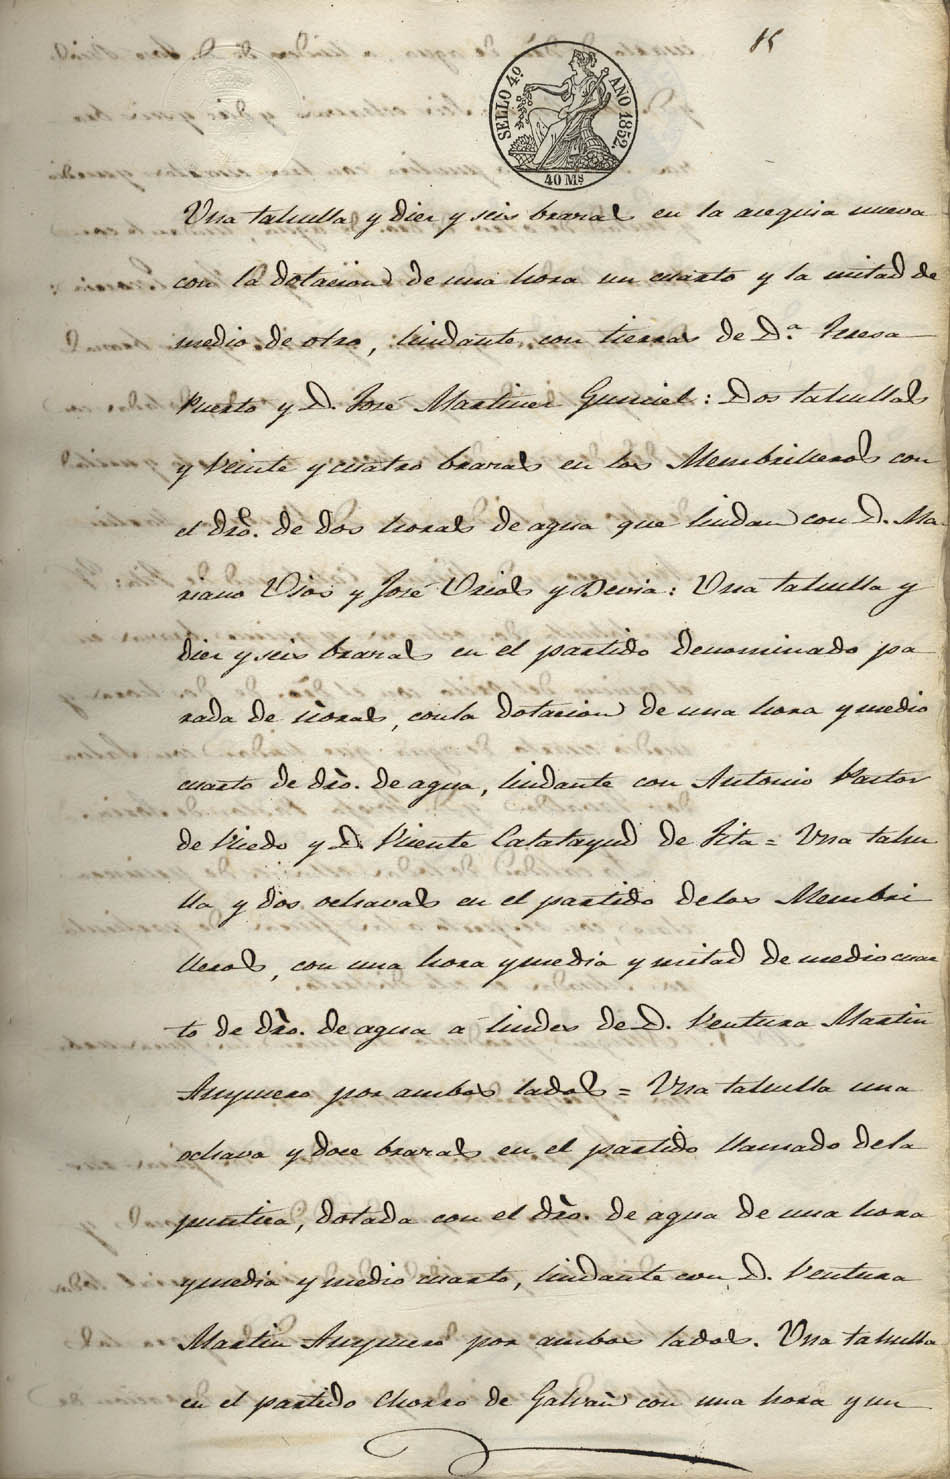 15
SELLO 4º. AÑO 1852.
40 Mˢ
Una tahulla y diez y seis brazas en la acequia nueva
con la dotacion de una hora un cuarto y la mitad de
medio de otro, lindante con tierras de D.ª Teresa
Puerto y D. José Martinez Gunciel: Dos tahullas
y veinte y cuatro brazas en los Membrilleros con
el dro. de dos horas de agua que lindan con D. Ma-
riano Vios y José Oriols y Devia: Una tahulla y
diez y seis brazas en el partido denominado pa
rada de, con la dotacion de una hora y medio
cuarto de dro. de agua, lindante con Antonio Pastor
de Viedo y D. Vicente Calatayud de Tita = Una tahu
lla y dos ochavas en el partido de los Membri
lleros, con una hora y media y mitad de medio cuar
to de dro. de agua á lindes de D. Ventura Martin
por ambos lados = Una tahulla una
ochava y doce brazas en el partido llamado de la
puntica, dotada con el dro. de agua de una hora
y media y medio cuarto, lindante con D. Ventura
Martin por ambos lados. Una tahulla
en el partido Chorro de Galvañ con una hora y un